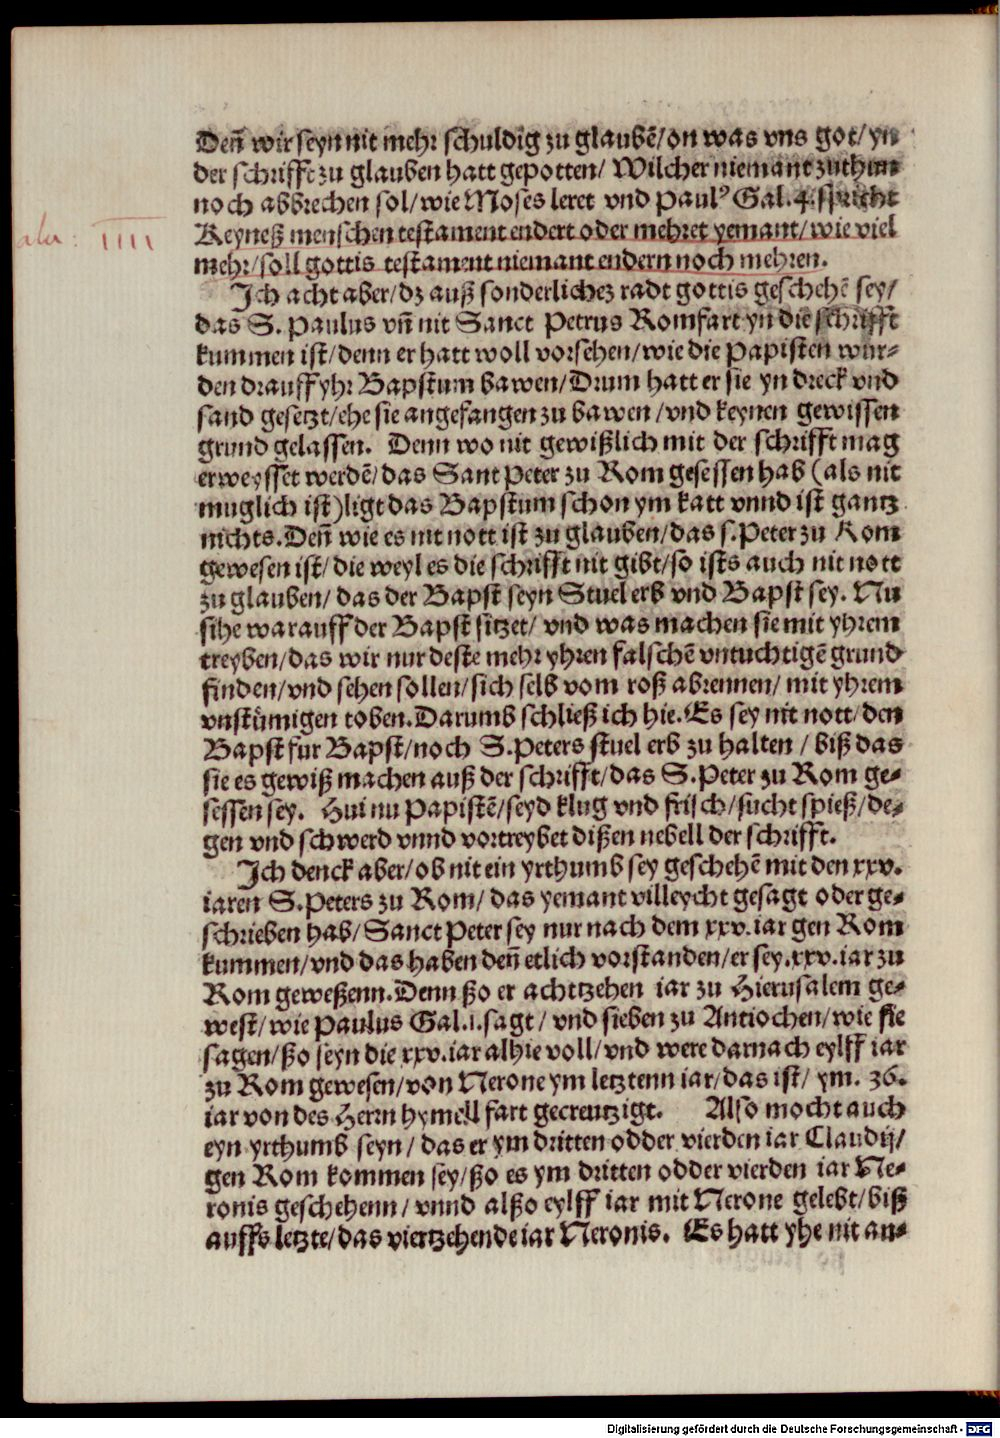 Deñ wir seyn nit mehr schuldig zu glaubē/on was vns got/yn
der schrifft zu glauben hatt gepotten/ Wilcher niemant zuthun
noch abbrechen sol/wie Moses leret vnd Paulꝰ Gal.4.spricht
ala: IIII
Keyneß menschen testament endert oder mehret yemant/wie viel
mehr/soll gottis testament niemant endern noch mehren.
Ich acht aber/dz auß sonderlichez radt gottis geschehē sey/
das S. Paulus vñ nit Sanct Petrus Romfart yn die schrifft
kummen ist/denn er hatt woll vorsehen/wie die Papisten wur-
den drauff yhr Bapstum bawen/Drum hatt er sie yn dreck vnd
sand gesetzt/ehe sie angefangen zu bawen/vnd keynen gewissen
grund gelassen. Denn wo nit gewißlich mit der schrifft mag
erweysset werdē/das Sant Peter zu Rom gesessen hab (als nit
muglich ist)ligt das Bapstum schon ym katt vnnd ist gantz
nichts.Deñ wie es nit nott ist zu glauben/das s.Peter zu Rom
gewesen ist/die weyl es die schrifft nit gibt/so ists auch nit nott
zu glauben/das der Bapst seyn Stuel erb vnd Bapst sey. Nu
sihe warauff der Bapst sitzet/ vnd was machen sie mit yhrem
treyben/das wir nur deste mehr yhren falschē vntuchtigē grund
finden/vnd sehen sollen/sich selb vom roß abrennen/mit yhrem
vnstümigen toben.Darumb schließ ich hie.Es sey nit nott/den
Bapst fur Bapst/noch S.Peters stuel erb zu halten / biß das
sie es gewiß machen auß der schrifft/das S.Peter zu Rom ge-
sessen sey. Hui nu Papistē/seyd klug vnd frisch/sucht spieß/de-
gen vnd schwerd vnnd vortreybet dißen nebell der schrifft.
Ich denck aber/ob nit ein yrthumb sey geschehē mit den xxv.
iaren S.Peters zu Rom/das yemant villeycht gesagt oder ge-
schrieben hab/Sanct Peter sey nur nach dem xxv.iar gen Rom
kummen/vnd das haben deñ etlich vorstanden/er sey.xxv.iar zu
Rom geweßenn.Denn ßo er achttzehen iar zu Hierusalem ge-
west/wie Paulus Gal.1.sagt/vnd sieben zu Antiochen/wie sie
sagen/ßo seyn die xxv.iar alhie voll/vnd were darnach eylff iar
zu Rom gewesen/von Nerone ym letztenn iar/das ist/ ym. 36.
iar von des Herrn hymell fart gecreutzigt. Also mocht auch
eyn yrthumb seyn/das er ym dritten odder vierden iar Claudij/
gen Rom kommen sey/ßo es ym dritten odder vierden iar Ne-
ronis geschehenn/vnnd alßo eylff iar mit Nerone gelebt/biß
auffs letzte/das viertzehende iar Neronis. Es hatt yhe nit an-
Digitalisierung gefördert durch die Deutsche Forschungsgemeinschaft - DFG